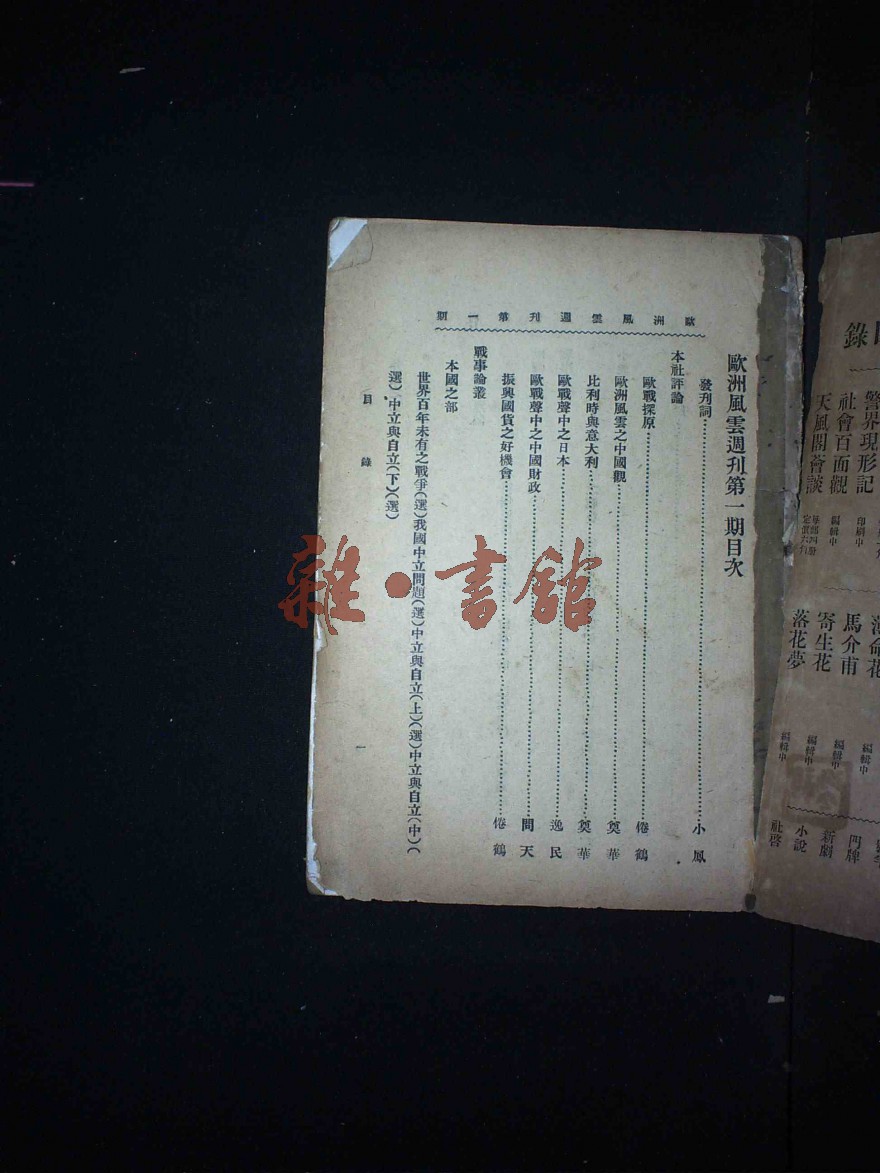 歐洲風雲週刊第一期
歐洲風雲週刊第一期目次
發刊詞……小鳳
本社評論
歐戰探原……倦鶴
歐洲風雲之中國觀……奠華
比利時與意大利……奠華
歐戰聲中之日本……逸民
歐戰聲中之中國財政……問天
振興國貨之好機會……倦鶴
戰事論叢
本國之部
世界百年未有之戰爭(選)我國中立問題(選)中立與自立(上)(選)中立與自立(中)(
選)中立與自立(下)(選)
目錄
一
雜·書館
錄
警界現形記
社會百面觀 編輯中
天風閣薈談
印刷中
薄命花
馬介甫 編輯中
寄生花 編輯中
落花夢 編輯中
門牌
新劇
小說
社啓